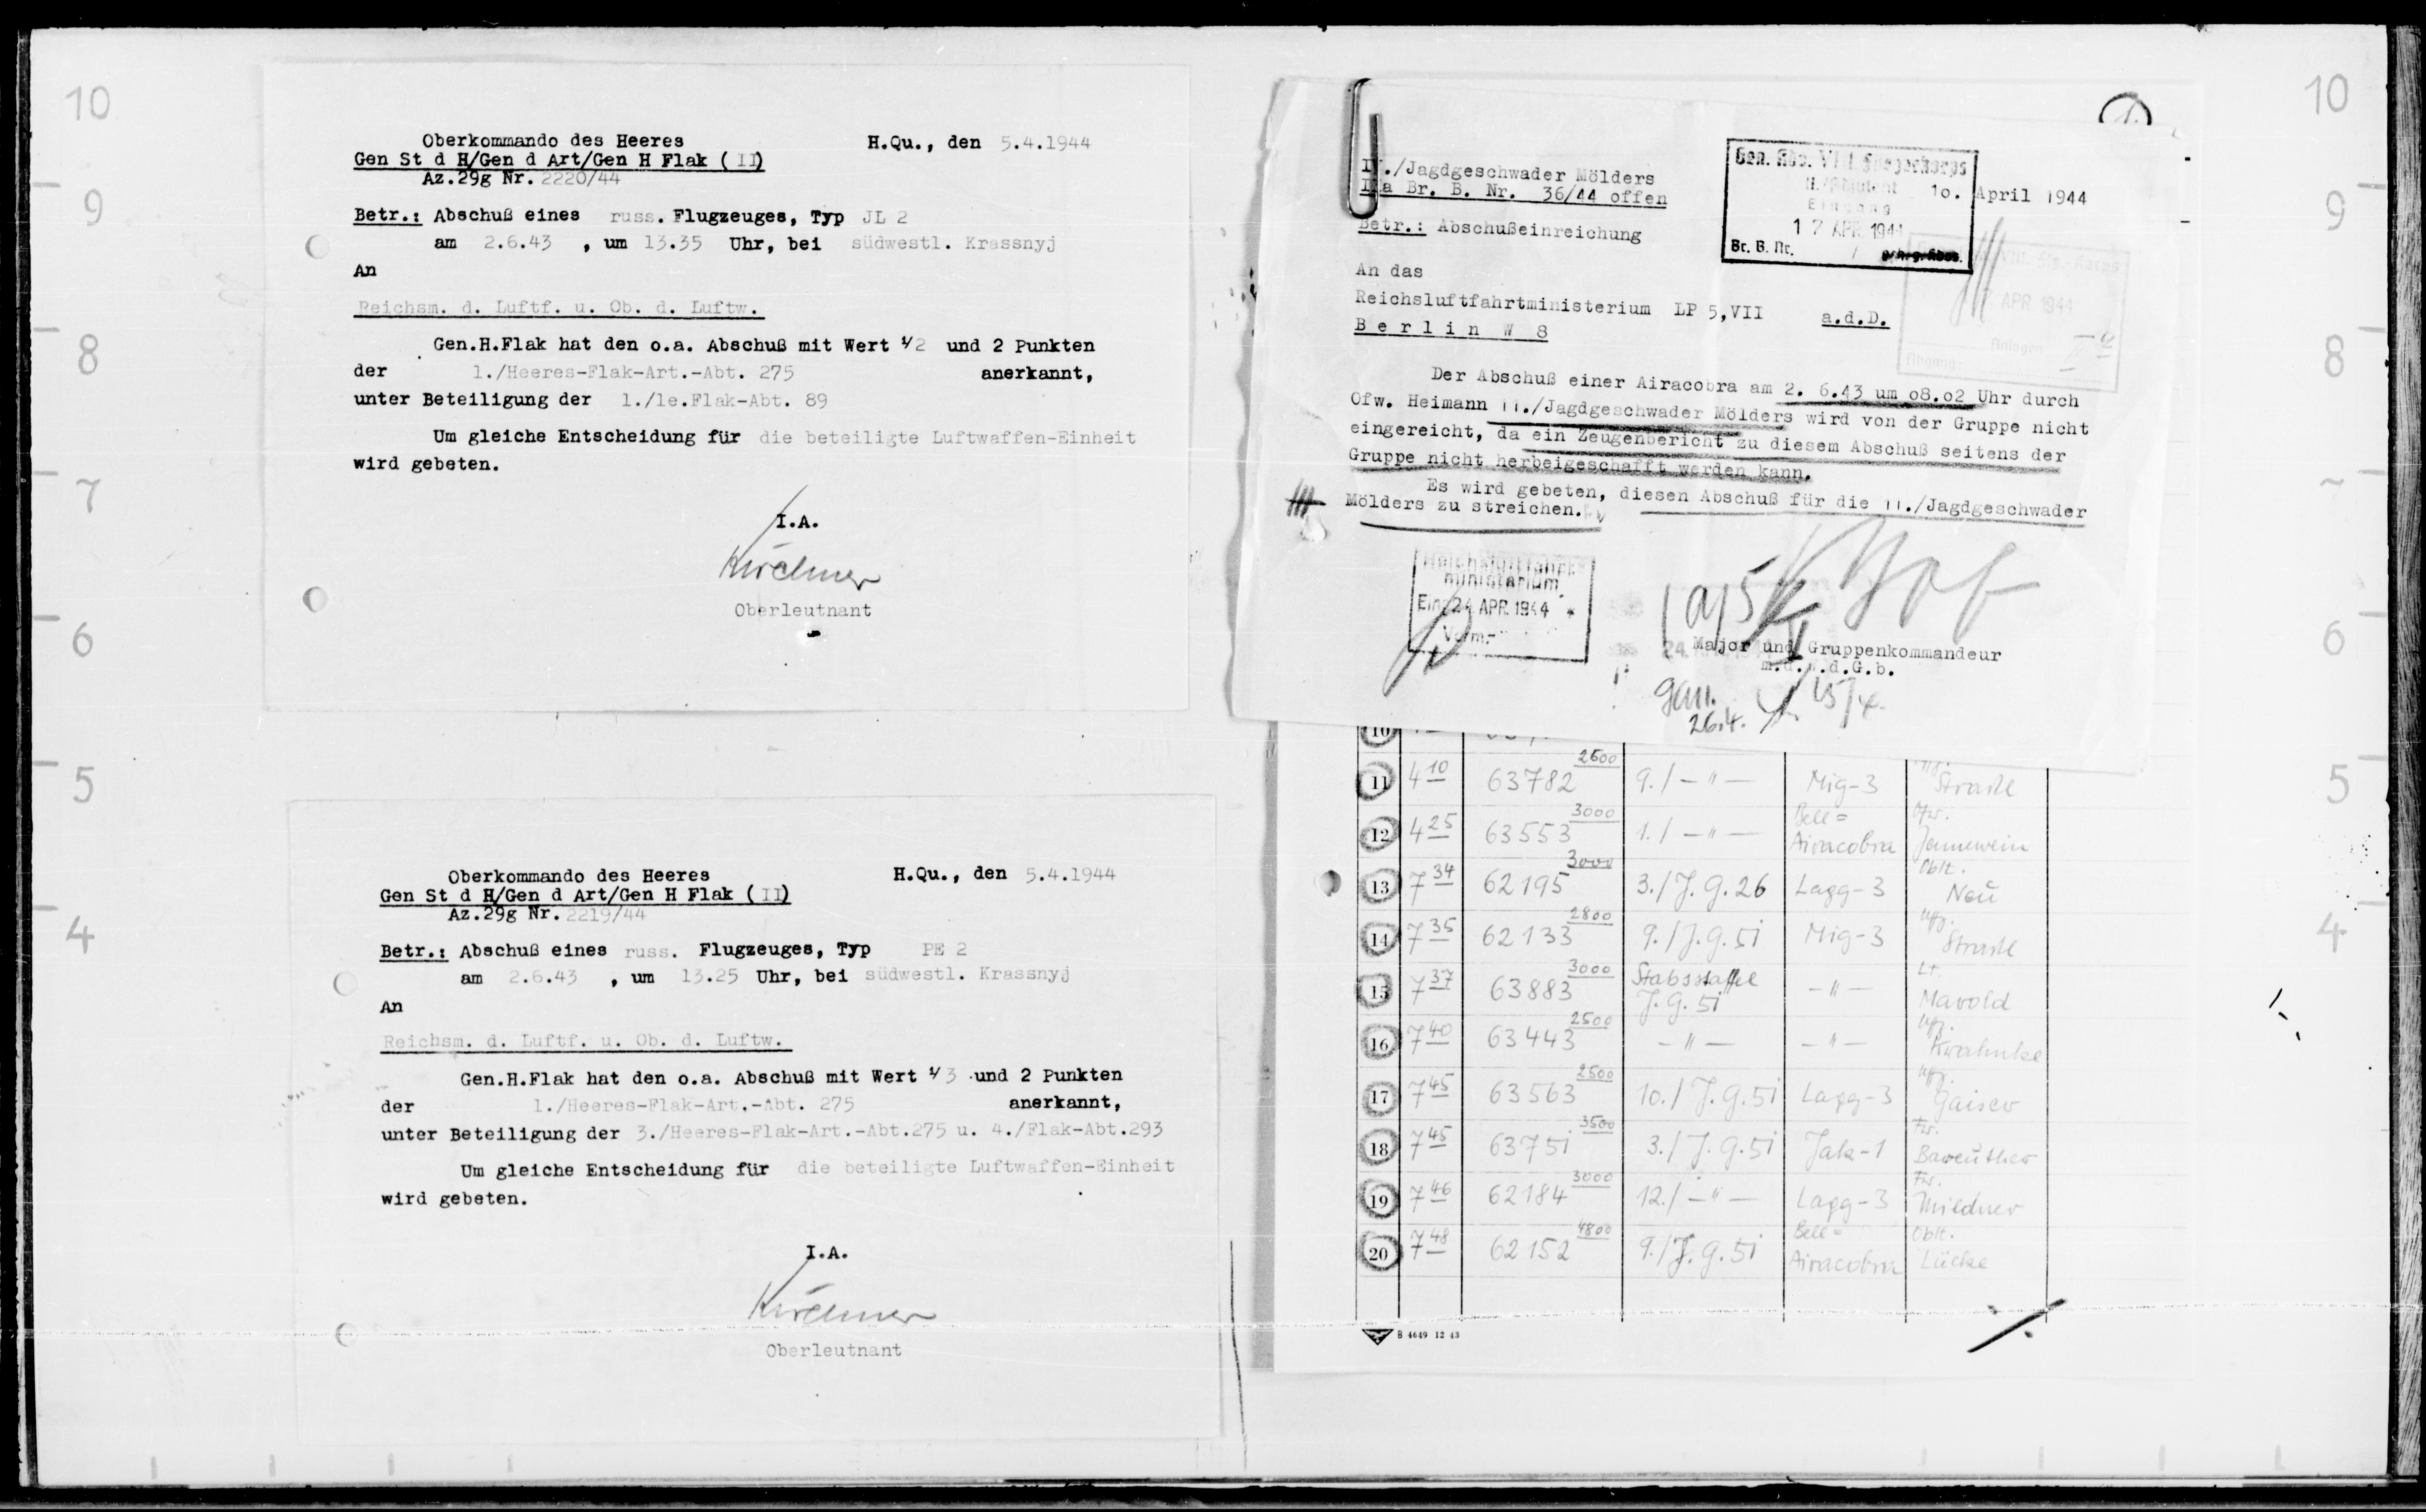 10
9
8
7
6
5
4
Oberkommando des Heeres
H.Qu., den 5.4.1944
Gen St d H/Gen d Art/Gen H Flak (II)
Az.29g Nr. 2220/44
Betr.: Abschuß eines russ. Flugzeuges, Typ JL 2
am 2.6.43 , um 13.35 Uhr, bei südwestl. Krassnyj
An
Reichsm. d. Luftf. u. Ob. d. Luftw.
Gen.H.Flak hat den o.a. Abschuß mit Wert 1/2 und 2 Punkten
der 1./Heeres-Flak-Art.-Abt. 275 anerkannt,
unter Beteiligung der 1./le.Flak-Abt. 89
Um gleiche Entscheidung für die beteiligte Luftwaffen-Einheit
wird gebeten.
I.A.
Kirchner
Oberleutnant
Oberkommando des Heeres
H.Qu., den 5.4.1944
Gen St d H/Gen d Art/Gen H Flak (II)
Az.29g Nr. 2219/44
Betr.: Abschuß eines russ. Flugzeuges, Typ PE 2
am 2.6.43 , um 13.25 Uhr, bei südwestl. Krassnyj
An
Reichsm. d. Luftf. u. Ob. d. Luftw.
Gen.H.Flak hat den o.a. Abschuß mit Wert 1/3 und 2 Punkten
der 1./Heeres-Flak-Art.-Abt. 275 anerkannt,
unter Beteiligung der 3./Heeres-Flak-Art.-Abt.275 u. 4./Flak-Abt.293
Um gleiche Entscheidung für die beteiligte Luftwaffen-Einheit
wird gebeten.
I.A.
Kirchner
Oberleutnant
./Jagdgeschwader Mölders
a Br. B. Nr. 36/44 offen
10. April 1944
Gen. Kdo. VIII Fliegerkorps
Eingang
17 APR. 1944
Br. B. Nr. /
Betr.: Abschußeinreichung
An das
Reichsluftfahrtministerium LP 5,VII
a.d.D.
Berlin W 8
APR 1944
Anlagen
Abgang:
Der Abschuß einer Airacobra am 2. 6.43 um 08.02 Uhr durch
Ofw. Heimann 11./Jagdgeschwader Mölders wird von der Gruppe nicht
eingereicht, da ein Zeugenbericht zu diesem Abschuß seitens der
Gruppe nicht herbeigeschafft werden kann.
Es wird gebeten, diesen Abschuß für die 11./Jagdgeschwader
Mölders zu streichen.
Reichsluftfahrt-
ministerium
Eing. 24 APR. 1944
Vorm.-
Major und Gruppenkommandeur
m.d.W.d.G.b.
gen.
26.4.
10
11 4 10 63782 2600 9./ – " – Mig-3 Uffz. Strassl
12 4 25 63553 3000 1./ – " – Bell= Airacobra Ofw. Jennewein
13 7 34 62195 3000 3./J.G.26 Lagg-3 Oblt. Neu
14 7 35 62133 2800 9./J.G.51 Mig-3 Uffz. Strassl
15 7 37 63883 3000 Stabsstaffel J.G.51 – " – Lt. Marold
16 7 40 63443 2500 – " – – " – Uffz.
17 7 45 63563 2500 10./J.G.51 Lagg-3 Uffz. Gaiser
18 7 45 63751 3500 3./J.G.51 Jak-1 Fw. Bareuther
19 7 46 62184 3000 12./ – " – Lagg-3 Fw. Mildner
20 7 48 62152 4800 9./J.G.51 Bell= Airacobra Oblt. Lücke
B 4649 12 43
10
9
8
6
5
4